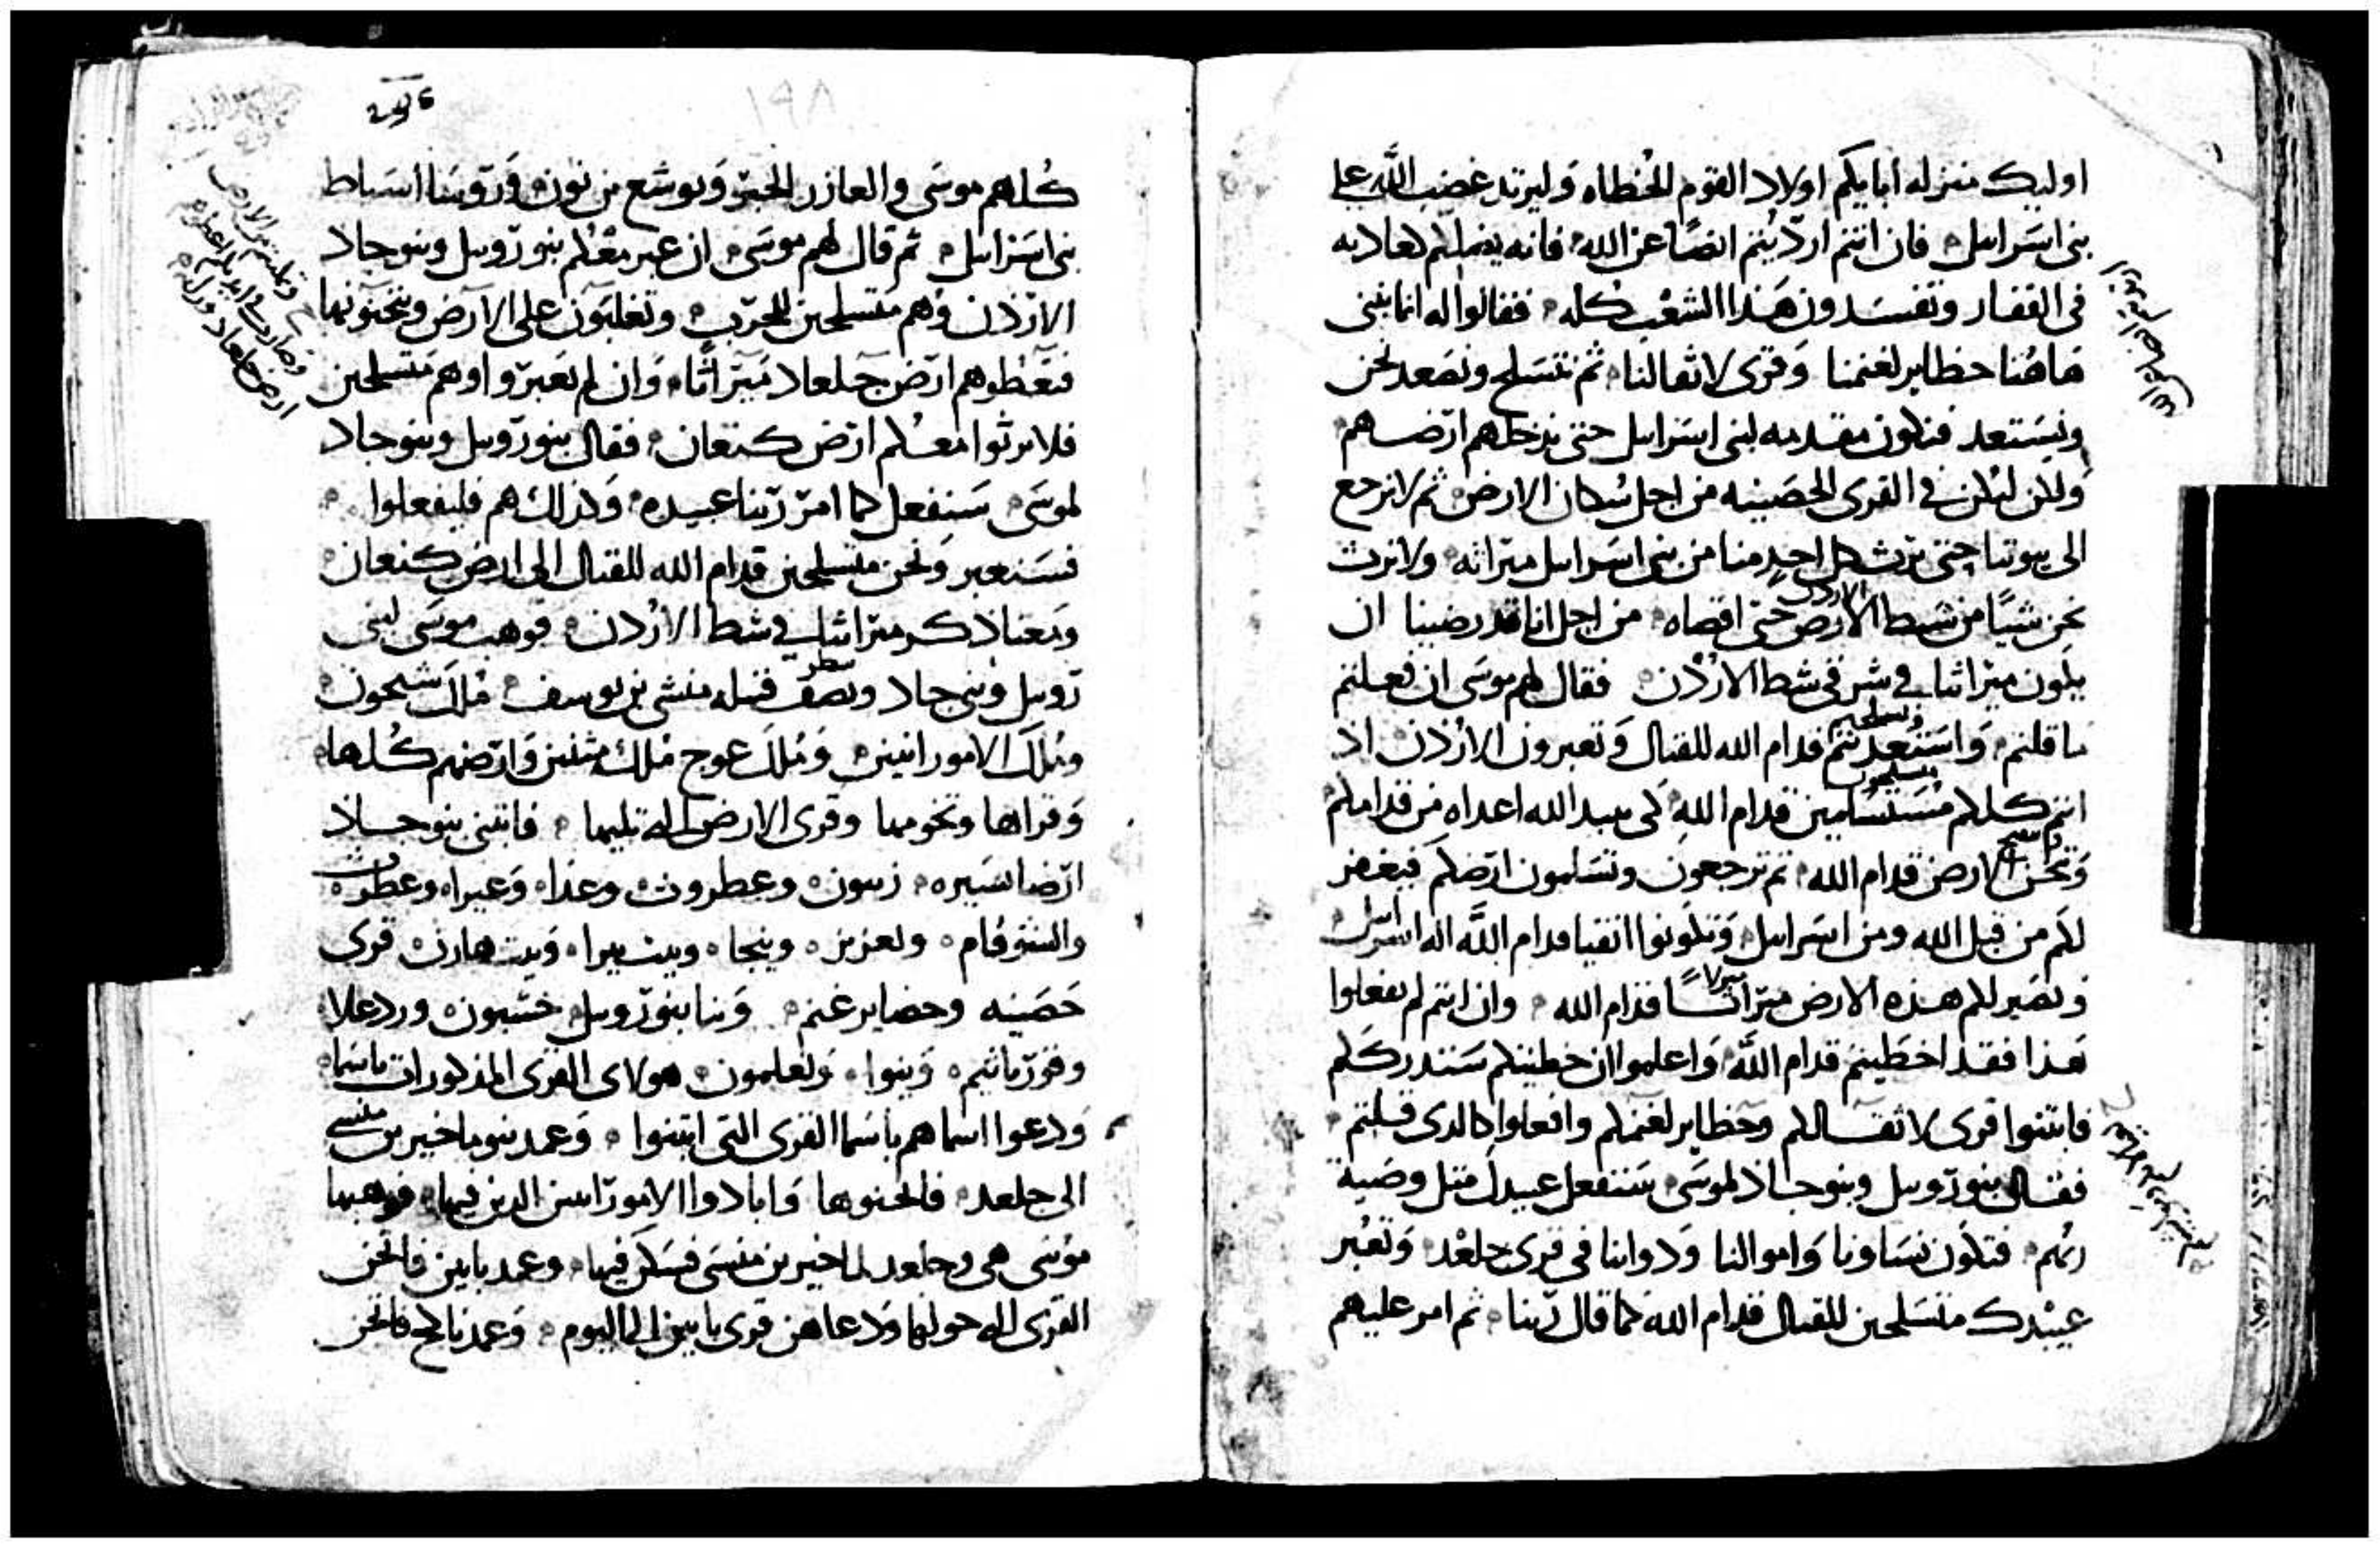 اوليك منزله أبايكم اولاد القوم الخطاه وليرتد غضب الله على
بنى اسرايل فان انتم ارديتم ايضا عن الله فانه يضلكم لعاد به
فى القفار وتفسدون هذا الشعب كله فقالوا له انما نبنى
هاهنا حظاير لغنمنا وقرى لاثقالنا ثم نتسلح ونصعد نحن
ونستعد فنكون مقدمه لبنى اسرايل حتى ندخلهم ارضهم
ولكن ليكن فى القرى الحصينه من اجل سكان الارض ثم لا نرجع
الى بيوتنا حتى يرث كل احد منا من بنى اسرايل ميراثه ولا نرث
نحن شيا من شط الارض حتى اقصاه من اجل انا قد رضينا ان
الاردن
يكون ميراثنا فى شرقى شط الاردن فقال لهم موسى ان فعلتم
ما قلتم واستعدتم قدام الله للقتال وتعبرون الاردن اذ
انتم كلكم مستسلمين قدام الله لكى يبيد الله اعداه من قدامكم
الارض قدام الله ثم ترجعون وتسلمون ارضكم فيغفر
لكم من قبل الله ومن اسرايل وتكونوا انقيا قدام الله اله اسرايل
وتصير لكم هذه الارض ميراثا قدام الله وان انتم لم تفعلوا
هذا فقد اخطيتم قدام الله واعلموا ان خطيتكم ستدرككم
فابتنوا قرى لاثقالكم وحظاير لغنمكم وافعلوا كالدى قلتم
فقال بنو روبيل وبنو جاد لموسى سنفعل عبيدك مثل وصية
ربهم فتكون نساونا واموالنا ودوابنا فى قرى جلعد وتعبر
عبيدك متسلحين للقتال قدام الله كما قال ربنا ثم امر عليهم
١٩٨
كلهم موسى والعازر الحبر ويوشع بن نون وروسا اسباط
بنى اسرايل ثم قال لهم موسى ان عبر معكم بنو روبيل وبنو جاد
الاردن وهم متسلحين للحرب وتغلبون على الارض وتحتوونها
فتعطوهم ارض جلعاد ميراثا وان لم يعبروا وهم متسلحين
فلا يرثوا معكم ارض كنعان فقال بنو روبيل وبنو جاد
لموسى سنفعل كما امر ربنا عبيده وكذلك هم فليفعلوا
فسنعبر ونحن متسلحين قدام الله للقتال الى ارض كنعان
ومعنا ذكر ميراثنا فى شط الاردن فوهب موسى لبنى
روبيل وبنى جاد ونصف قبيله منشى بن يوسف ملك شيحون
وملك الامورانيين وملك عوج ملك متنين وارضهم كلها
وقراها وتخومها وقرى الارض التى تليها فابتنى بنو جاد
ارضا يسيره زيبون وعطروث وعذا وعيرا وعطروث
والشوفام ولعزير وينجا وبيت بيرا وبيت هارن قرى
حصينه وحضاير غنم وبنا بنو روبيل حسبون وردعلا
وقورياثيم وبنوا ولعلمون هولاى القرى المذكورات باسما
ودعوا اسماهم باسما القرى التى ابتنوا وعمد بنو ماخير بن منسى
الى جلعد فاخنوها وابادوا الاموراسن الدين فيها فوهبها
موسى هى وجلعد لماخير بن منسى فسكن فيها وعمد يابين فاتخن
القرى التى حولها ودعاهن قرى يابين الى اليوم وعمد ناباح فاتخن